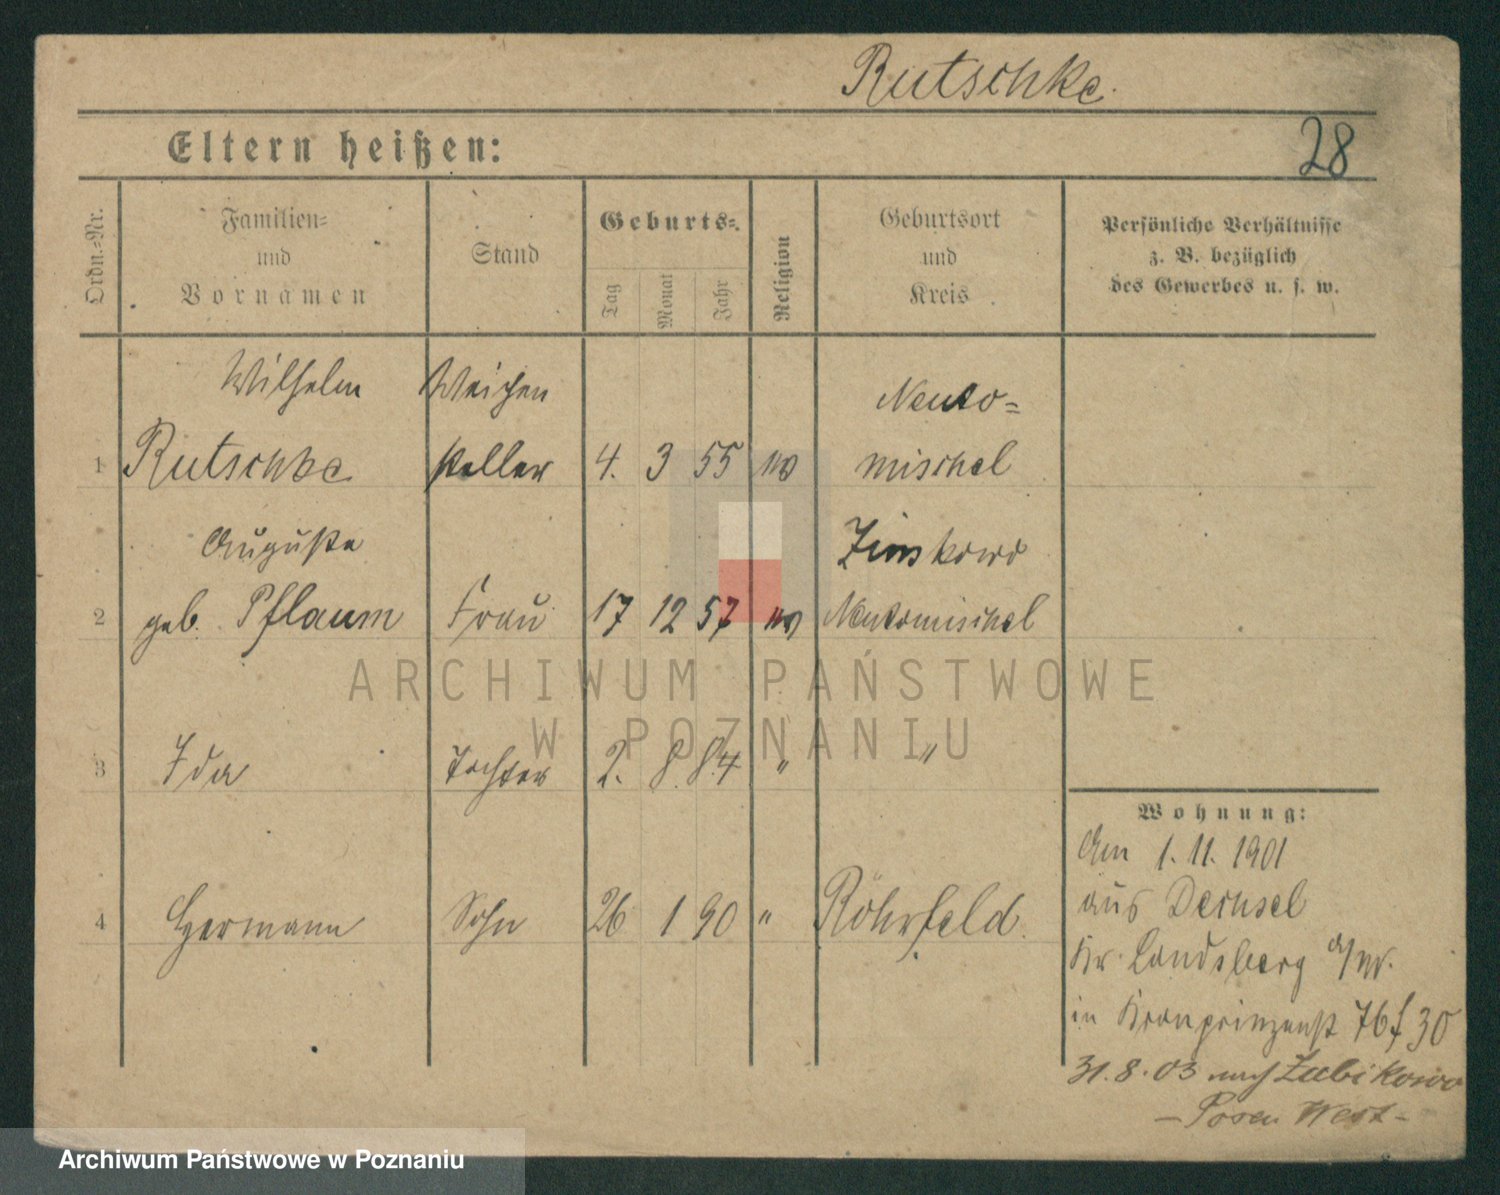 Rutschke.
Eltern heißen:
28
Ordn.-Nr.
Familien-
und
Vornamen
Stand
Geburts-
Tag
Monat
Jahr
Religion
Geburtsort
und
Kreis
Persönliche Verhältnisse
z. B. bezüglich
des Gewerbes u. s. w.
Wilhelm Weichen Neuto=
1 Rutschke steller 4. 3 55 mischel
Auguste Zinskowo
2 geb. Pflaum Frau 17 12 57 Neutomischel
3 Ida Tochter 2. 8 84 " "
4 Hermann Sohn 26 1 90 " Röhrfeld
Wohnung:
Am 1. 11. 1901
aus Dechsel
Kr. Landsberg a/W.
in Kronprinzenst 76 f 30
31.8.03 nach Zabikowo
- Posen West -
ARCHIWUM PAŃSTWOWE
W POZNANIU
Archiwum Państwowe w Poznaniu